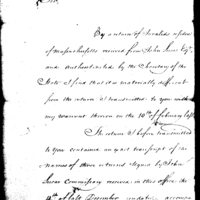 Sir,
By a return of Invalids
of Massachusetts received from John Lucas Esqr
and authenticated by the Secretary of the
State I find that it is materially different
from the return I transmitted to you with
my Warrant thereon on the 10th of February last
The return I before transmitted
to you contained an exact transcript of the
names of those returned signed by John
Lucas Commissary received in this office the
of last December